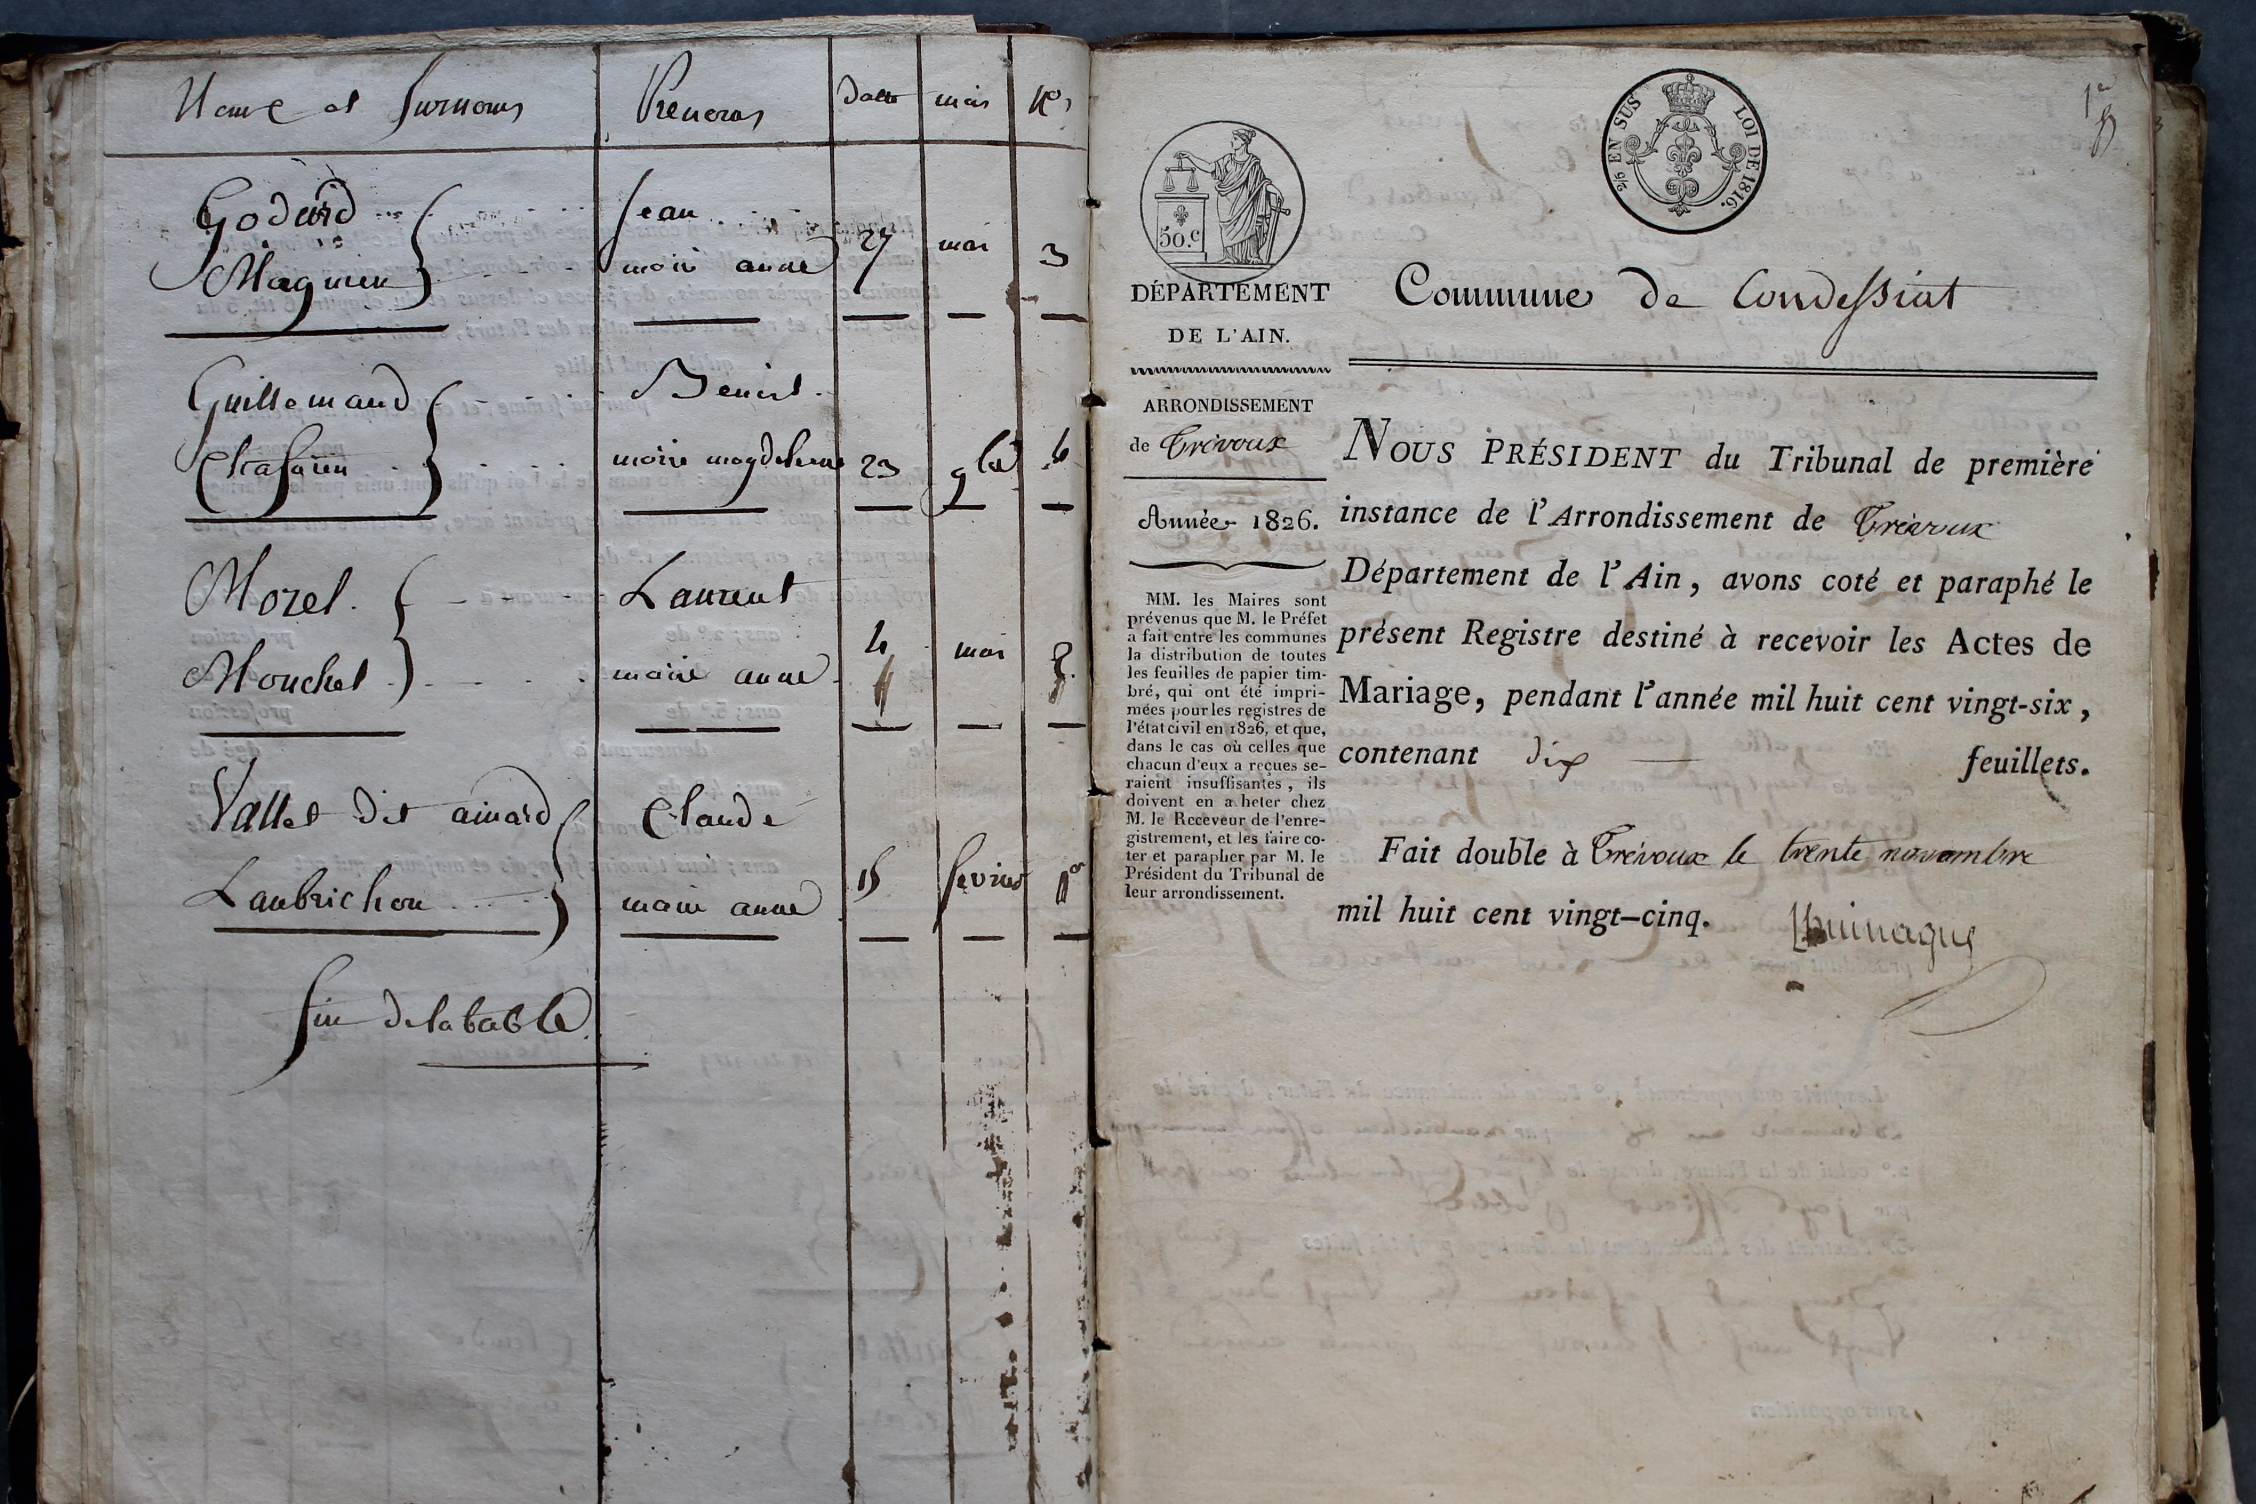 Noms et Surnoms Prenoms Date mois Nos
Godard Jean
Magnien marie anne 27 mai 3
Guillemaud Benoist
Chafarin marie magdelaine 23 9bre 4
Morel Laurent
Mouchet marie anne 4 mai 2
Vallet dit ainard Claude
Laubrichon marie anne 15 fevrier 1er
fin de la table
1er
2/5 EN SUS LOI DE 1816.
50.c
DÉPARTEMENT
DE L'AIN.
ARRONDISSEMENT
de Trévoux
Année 1826.
MM. les Maires sont
prévenus que M. le Préfet
a fait entre les communes
la distribution de toutes
les feuilles de papier tim-
bré, qui ont été impri-
mées pour les registres de
l'état civil en 1826, et que,
dans le cas où celles que
chacun d'eux a reçues se-
raient insuffisantes, ils
doivent en acheter chez
M. le Receveur de l'enre-
gistrement, et les faire co-
ter et parapher par M. le
Président du Tribunal de
leur arrondissement.
Commune de Condessiat
NOUS PRÉSIDENT du Tribunal de première
instance de l'Arrondissement de Trévoux
Département de l'Ain, avons coté et paraphé le
présent Registre destiné à recevoir les Actes de
Mariage, pendant l'année mil huit cent vingt-six,
contenant dix feuillets.
Fait double à Trévoux le trente novembre
mil huit cent vingt-cinq.